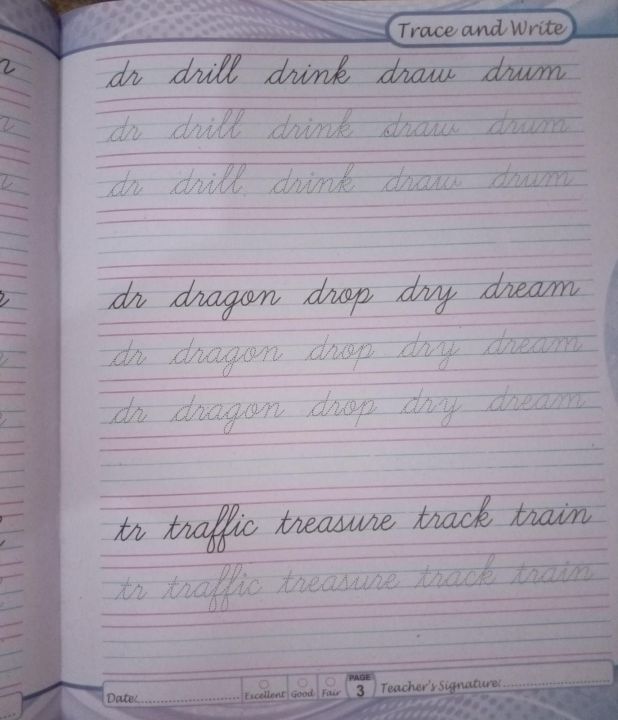 Trace and Write
dr drill drink draw drum
dr drill drink draw drum
dr drill drink draw drum
dr dragon drop dry dream
dr dragon drop dry dream
dr dragon drop dry dream
tr traffic treasure track train
tr traffic treasure track train
Date: Excellent Good Fair PAGE 3 Teacher's Signature: